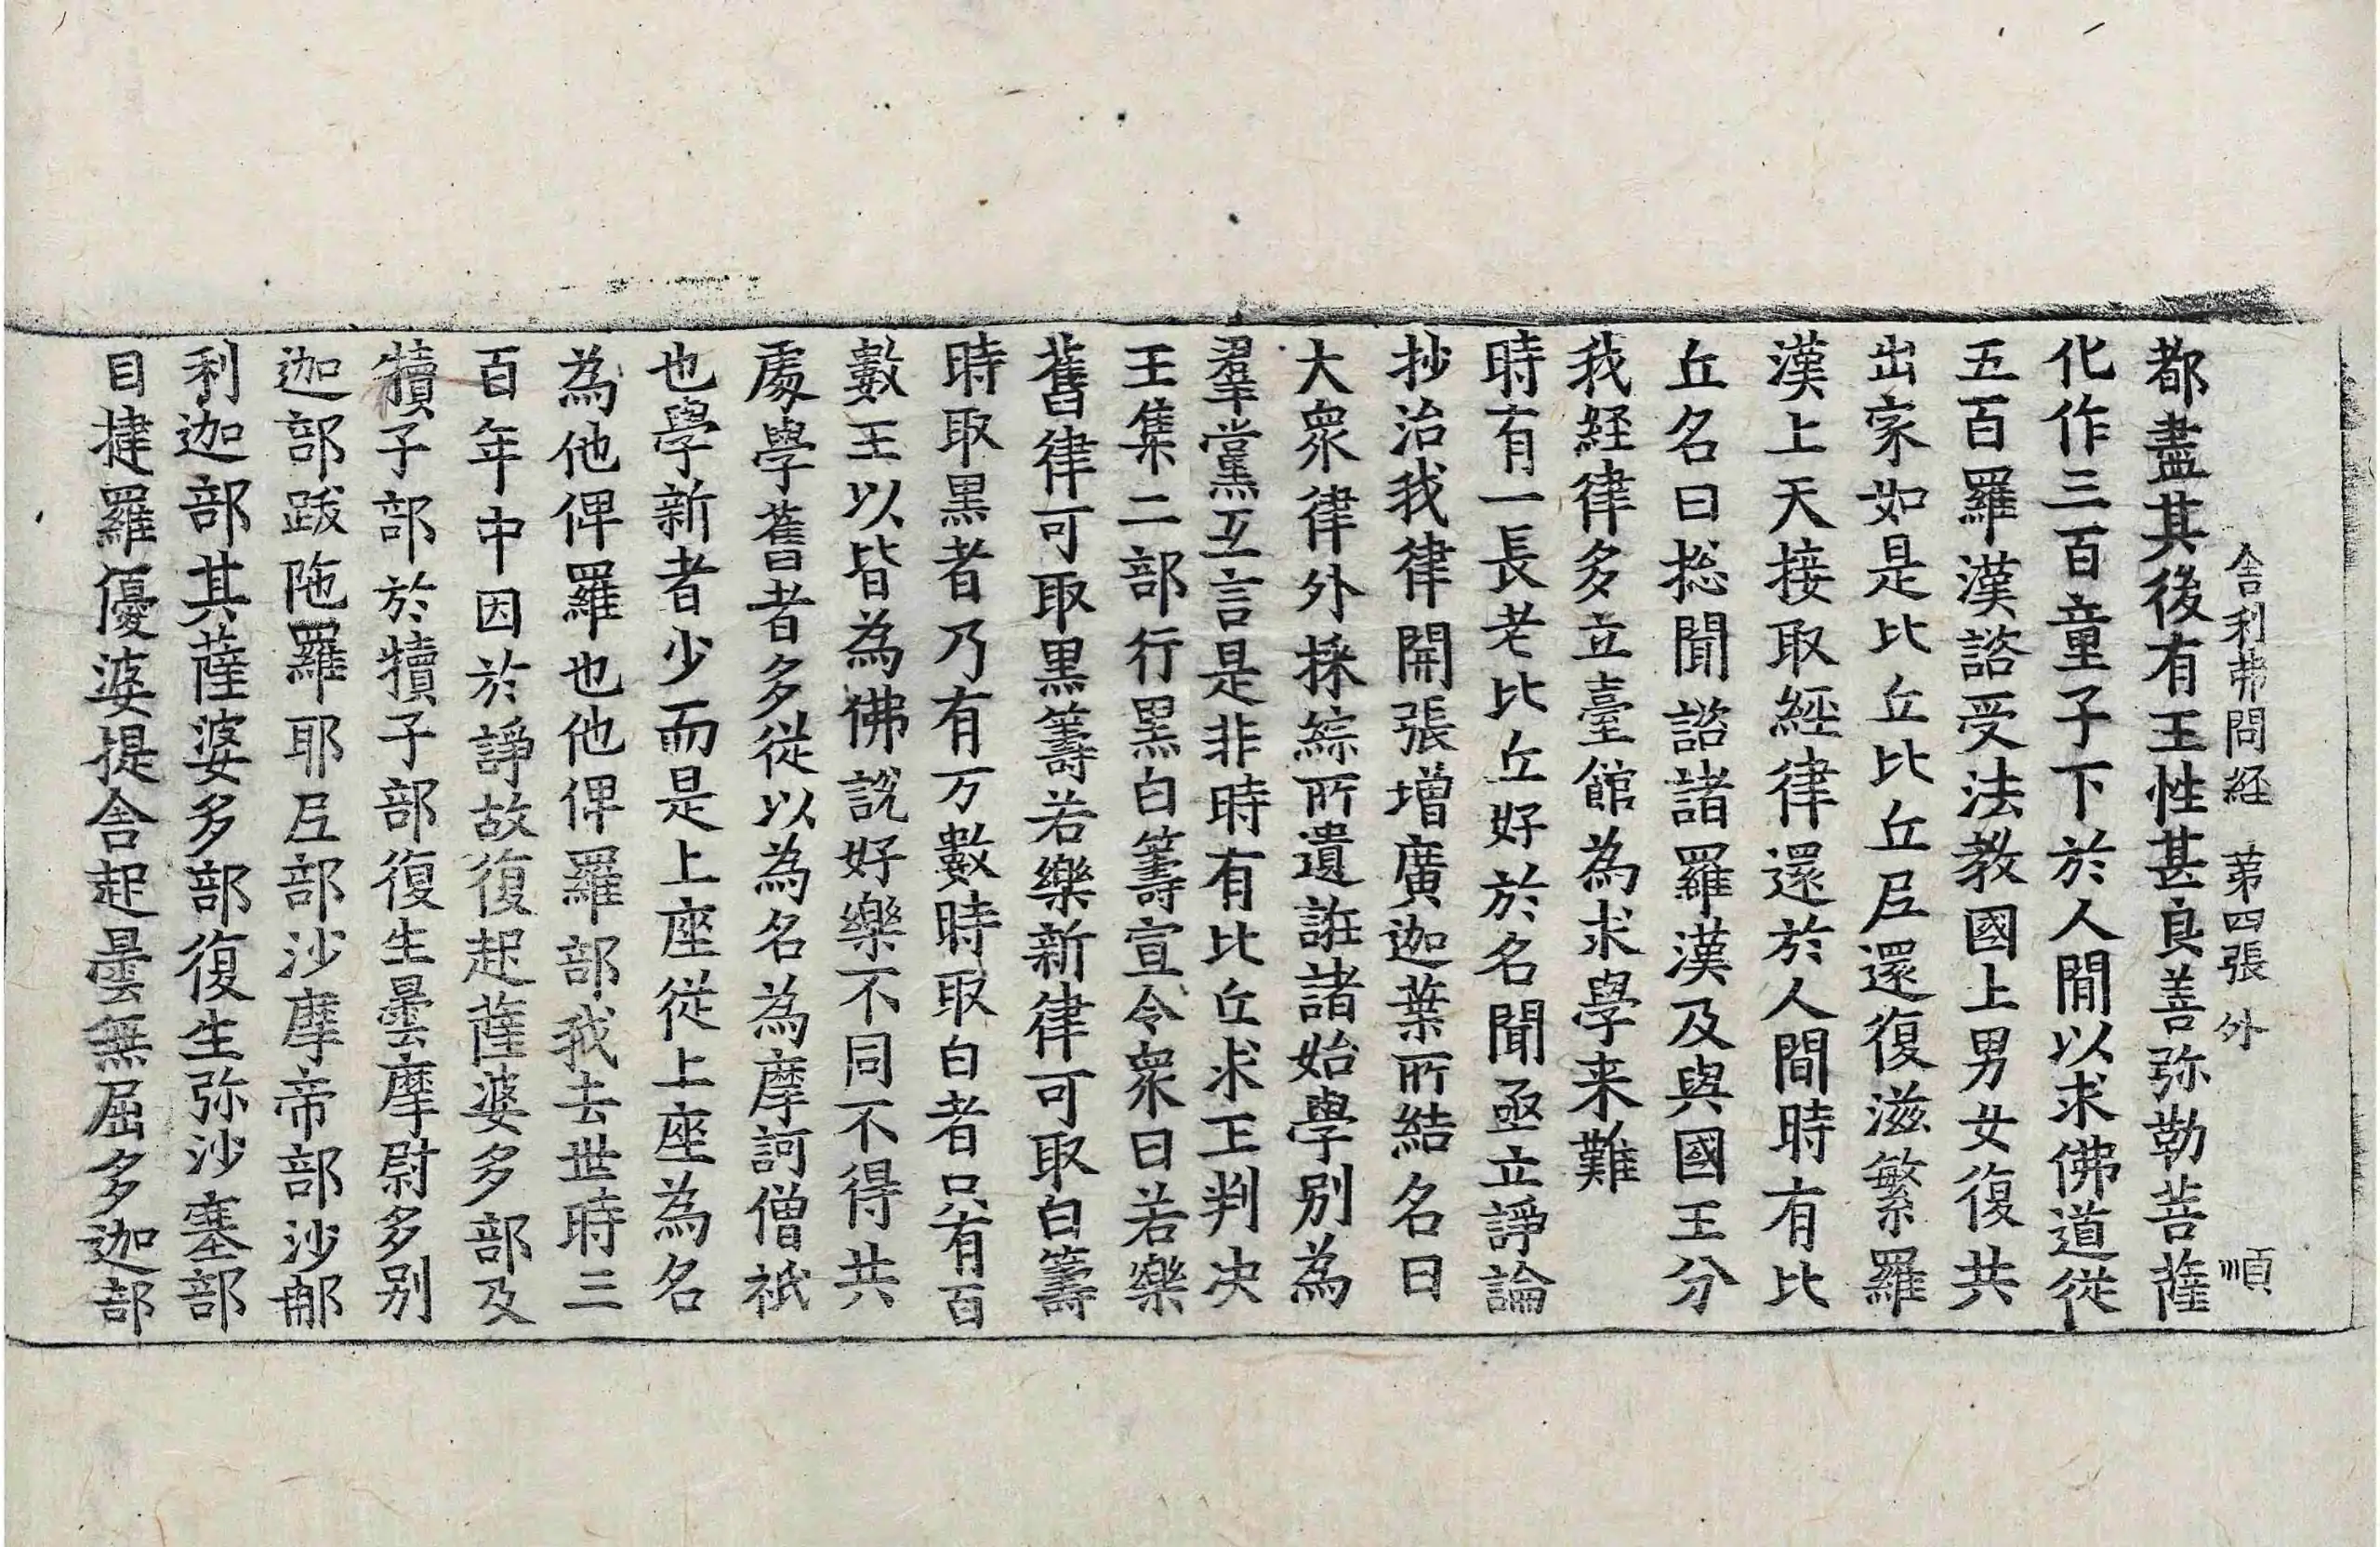 舍利弗問経 第四張 外 順
都盡其後有王性甚良善弥勒菩薩
化作三百童子下於人間以求佛道從
五百羅漢諮受法教國上男女復共
出家如是比丘比丘尼還復滋繁羅
漢上天接取經律還於人間時有比
丘名曰捴聞諮諸羅漢及與國王分
我経律多立臺館為求學来難
時有一長老比丘好於名聞亟立諍論
抄治我律開張增廣迦葉所結名曰
大衆律外採綜所遺誑諸始學別為
羣黨互言是非時有比丘求王判决
王集二部行黒白籌宣令衆曰若樂
舊律可取黒籌若樂新律可取白籌
時取黒者乃有万數時取白者只有百
數王以皆為佛說好樂不同不得共
處學舊者多從以為名為摩訶僧祇
也學新者少而是上座從上座為名
為他俾羅也他俾羅部我去世時三
百年中因於諍故復起薩婆多部及
犢子部於犢子部復生曇摩尉多別
迦部跋陁羅耶尼部沙摩帝部沙那
利迦部其薩婆多部復生弥沙塞部
目揵羅優婆提舍起曇無屈多迦部